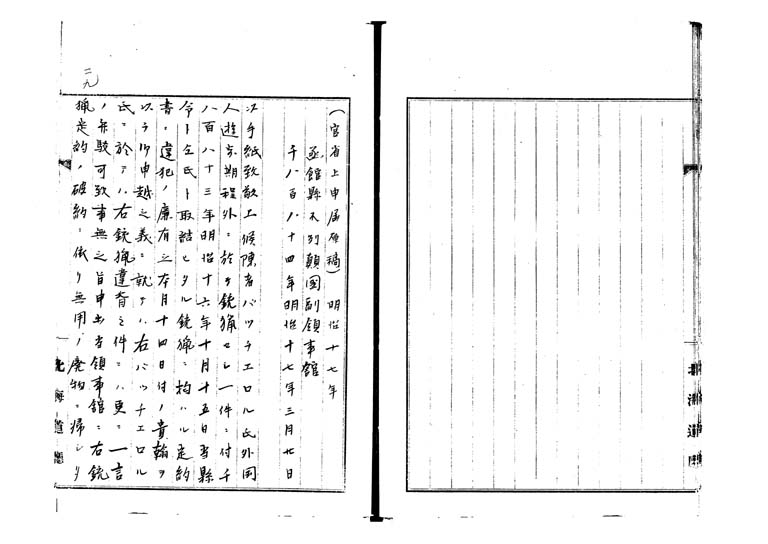 (官省上申届原稿) 明治十七年
函館縣不列顛國副領事館
千八百八十四年明治十七年三月廿日
以手紙致啓上候陳者バツチエロル氏外国
人遊歩期程外ニ於テ銃猟セシ一件ニ付千
八百八十三年明治十六年十月十五日当縣
令ト仝氏ト取結ヒタル銃猟ニ拘ハル定約
書ニ違犯ノ廉有之本月十四日付ノ貴翰ヲ
以テ御申越之義ニ就テハ右バツチエロル
氏ニ於テハ右銃猟違背之件ニハ更ニ一言
ノ弁駁可致事無之旨申出当領事館ニ右銃
猟定約ノ破約ニ依リ無用ノ廃物ニ帰シタ
二九
北海道廳
北海道廳